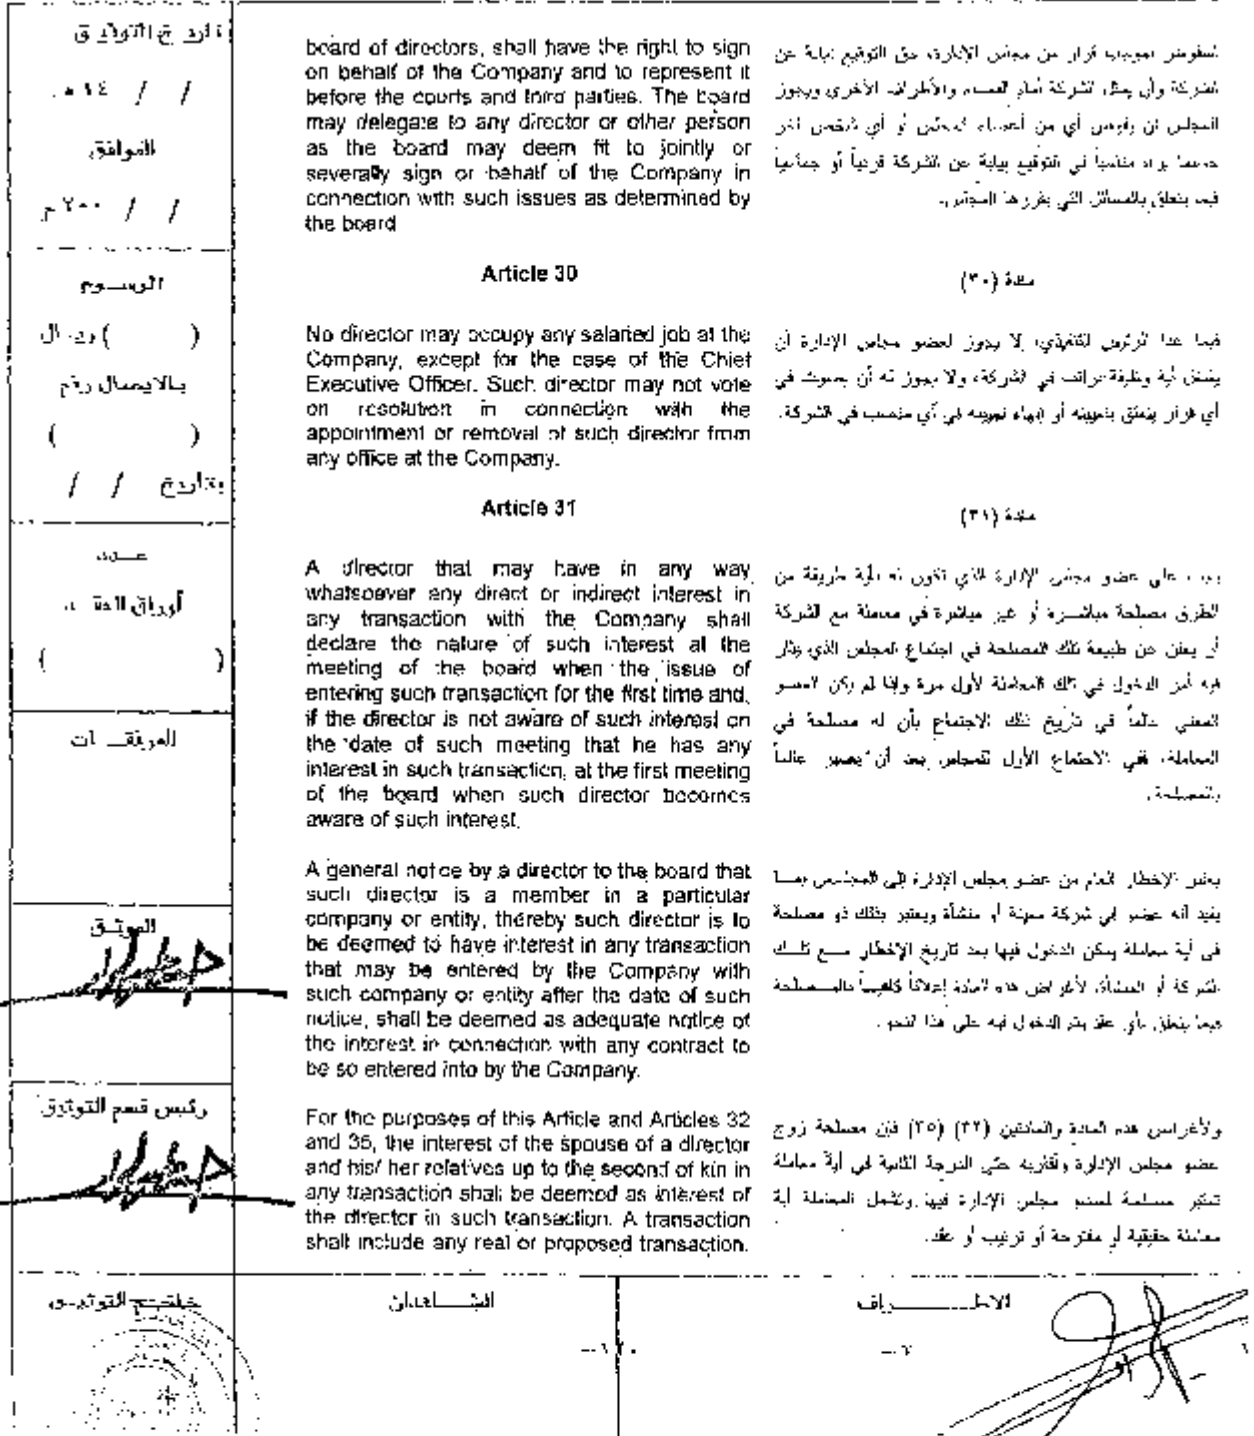 تاريخ التوثيق
/ / ١٤ هـ
الموافق
/ / ٢٠٠ م
الرســوم
( ) ريال
بالايصال رقم
( )
بتاريخ / /
عــدد
أوراق العقــد
( )
المرفقــات
الموثـق
رئيس قسم التوثيق
board of directors, shall have the right to sign
on behalf of the Company and to represent it
before the courts and third parties. The board
may delegate to any director or other person
as the board may deem fit to jointly or
severally sign or behalf of the Company in
connection with such issues as determined by
the board
Article 30
No director may occupy any salaried job at the
Company, except for the case of the Chief
Executive Officer. Such director may not vote
on resolution in connection with the
appointment or removal of such director from
any office at the Company.
Article 31
A director that may have in any way
whatsoever any direct or indirect interest in
any transaction with the Company shall
declare the nature of such interest at the
meeting of the board when the issue of
entering such transaction for the first time and,
if the director is not aware of such interest on
the date of such meeting that he has any
interest in such transaction, at the first meeting
of the board when such director becomes
aware of such interest.
A general notice by a director to the board that
such director is a member in a particular
company or entity, thereby such director is to
be deemed to have interest in any transaction
that may be entered by the Company with
such company or entity after the date of such
notice, shall be deemed as adequate notice of
the interest in connection with any contract to
be so entered into by the Company.
For the purposes of this Article and Articles 32
and 35, the interest of the spouse of a director
and his/ her relatives up to the second of kin in
any transaction shall be deemed as interest of
the director in such transaction. A transaction
shall include any real or proposed transaction.
المفوض بموجب قرار من مجلس الإدارة، حق التوقيع نيابة عن
الشركة وأن يمثل الشركة أمام القضاء والأطراف الأخرى ويجوز
للمجلس أن يفوض أي من أعضاء المجلس أو أي شخص آخر
حسبما يراه مناسباً في التوقيع نيابة عن الشركة فردياً أو جماعياً
فيما يتعلق بالمسائل التي يقررها المجلس.
مادة (٣٠)
فيما عدا الرئيس التنفيذي، لا يجوز لعضو مجلس الإدارة أن
يشغل أية وظيفة براتب في الشركة، ولا يجوز له أن يصوت في
أي قرار يتعلق بتعيينه أو إنهاء تعيينه في أي منصب في الشركة.
مادة (٣١)
يجب على عضو مجلس الإدارة الذي تكون له بأية طريقة من
الطرق مصلحة مباشــرة أو غير مباشرة في معاملة مع الشركة
أن يعلن عن طبيعة تلك المصلحة في اجتماع المجلس الذي يثار
فيه أمر الدخول في تلك المعاملة لأول مرة وإذا لم يكن العضو
المعني عالماً في تاريخ ذلك الاجتماع بأن له مصلحة في
المعاملة، ففي الاجتماع الأول للمجلس بعد أن يصير عالماً
بالمصلحة.
يعتبر الإخطار العام من عضو مجلس الإدارة إلى المجلــس بمــا
يفيد أنه عضو في شركة معينة أو منشأة ويعتبر بذلك ذو مصلحة
في أية معاملة يمكن الدخول فيها بعد تاريخ الإخطار مــع تلــك
الشركة أو المنشأة، لأغراض هذه المادة إعلاناً كافيــاً بالمــصلحة
فيما يتعلق بأي عقد يتم الدخول فيه على هذا النحو.
ولأغراض هذه المادة والمادتين (٣٢) (٣٥) فإن مصلحة زوج
عضو مجلس الإدارة وأقاربه حتى الدرجة الثانية في أية معاملة
تعتبر مصلحة لعضو مجلس الإدارة فيها وتشمل المعاملة أية
معاملة حقيقية أو مقترحة أو ترتيب أو عقد.
خاتــم التوثيــق
الشــــاهدان
الاطــــــــراف